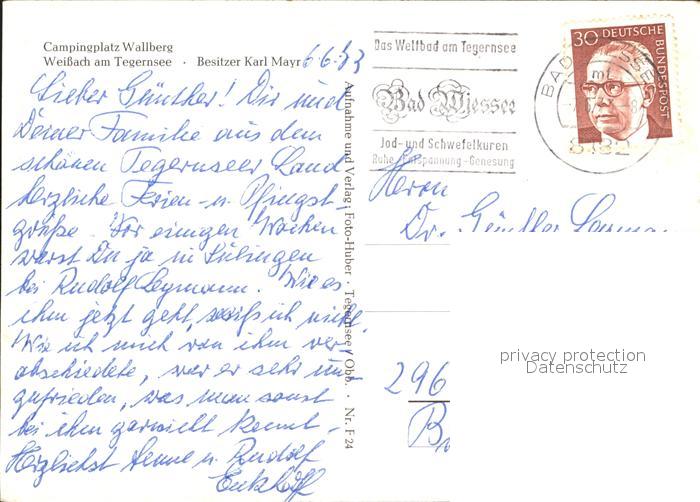 Campingplatz Wallberg
Weißach am Tegernsee · Besitzer Karl Mayr
6.6.73
Lieber Günther! Dir und
Deiner Familie aus dem
schönen Tegernseer Land
herzliche Ferien- u. Pfingst-
grüße. Vor einigen Wochen
warst Du ja in Sülingen
bei Rudolf Leymann. Wie es
ihm jetzt geht, weiß ich nicht.
Wie ich mich von ihm ver-
abschiedete, war er sehr un-
zufrieden, was man sonst
bei ihm garnicht kennt.
Herzlichst Henne u. Rudolf
Aufnahme und Verlag: Foto-Huber · Tegernsee/Obb. · Nr. F 24
Das Weltbad am Tegernsee
Bad Wiessee
Jod- und Schwefelkuren
Ruhe-Entspannung-Genesung
BAD
8182
30 DEUTSCHE BUNDESPOST
Herrn
Dr. Günther
296
privacy protection
Datenschutz